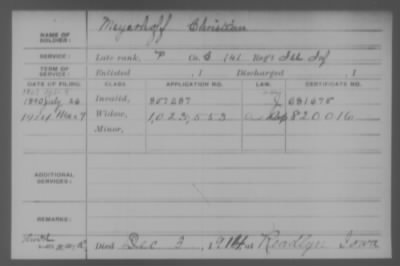 NAME OF SOLDIER: Meyerhoff Christian
SERVICE: Late rank, P Co. C 141 Reg't Ill Inf
TERM OF SERVICE: Enlisted , 1 Discharged , 1
DATE OF FILING. CLASS. APPLICATION NO. LAW. CERTIFICATE NO.
1890 July 26 Invalid, 857287 J 681675
1914 Dec 29 Widow, 1,023,553 820016
Minor,
ADDITIONAL SERVICES:
REMARKS:
Died Dec 3, 1914, at Readlyn Iowa